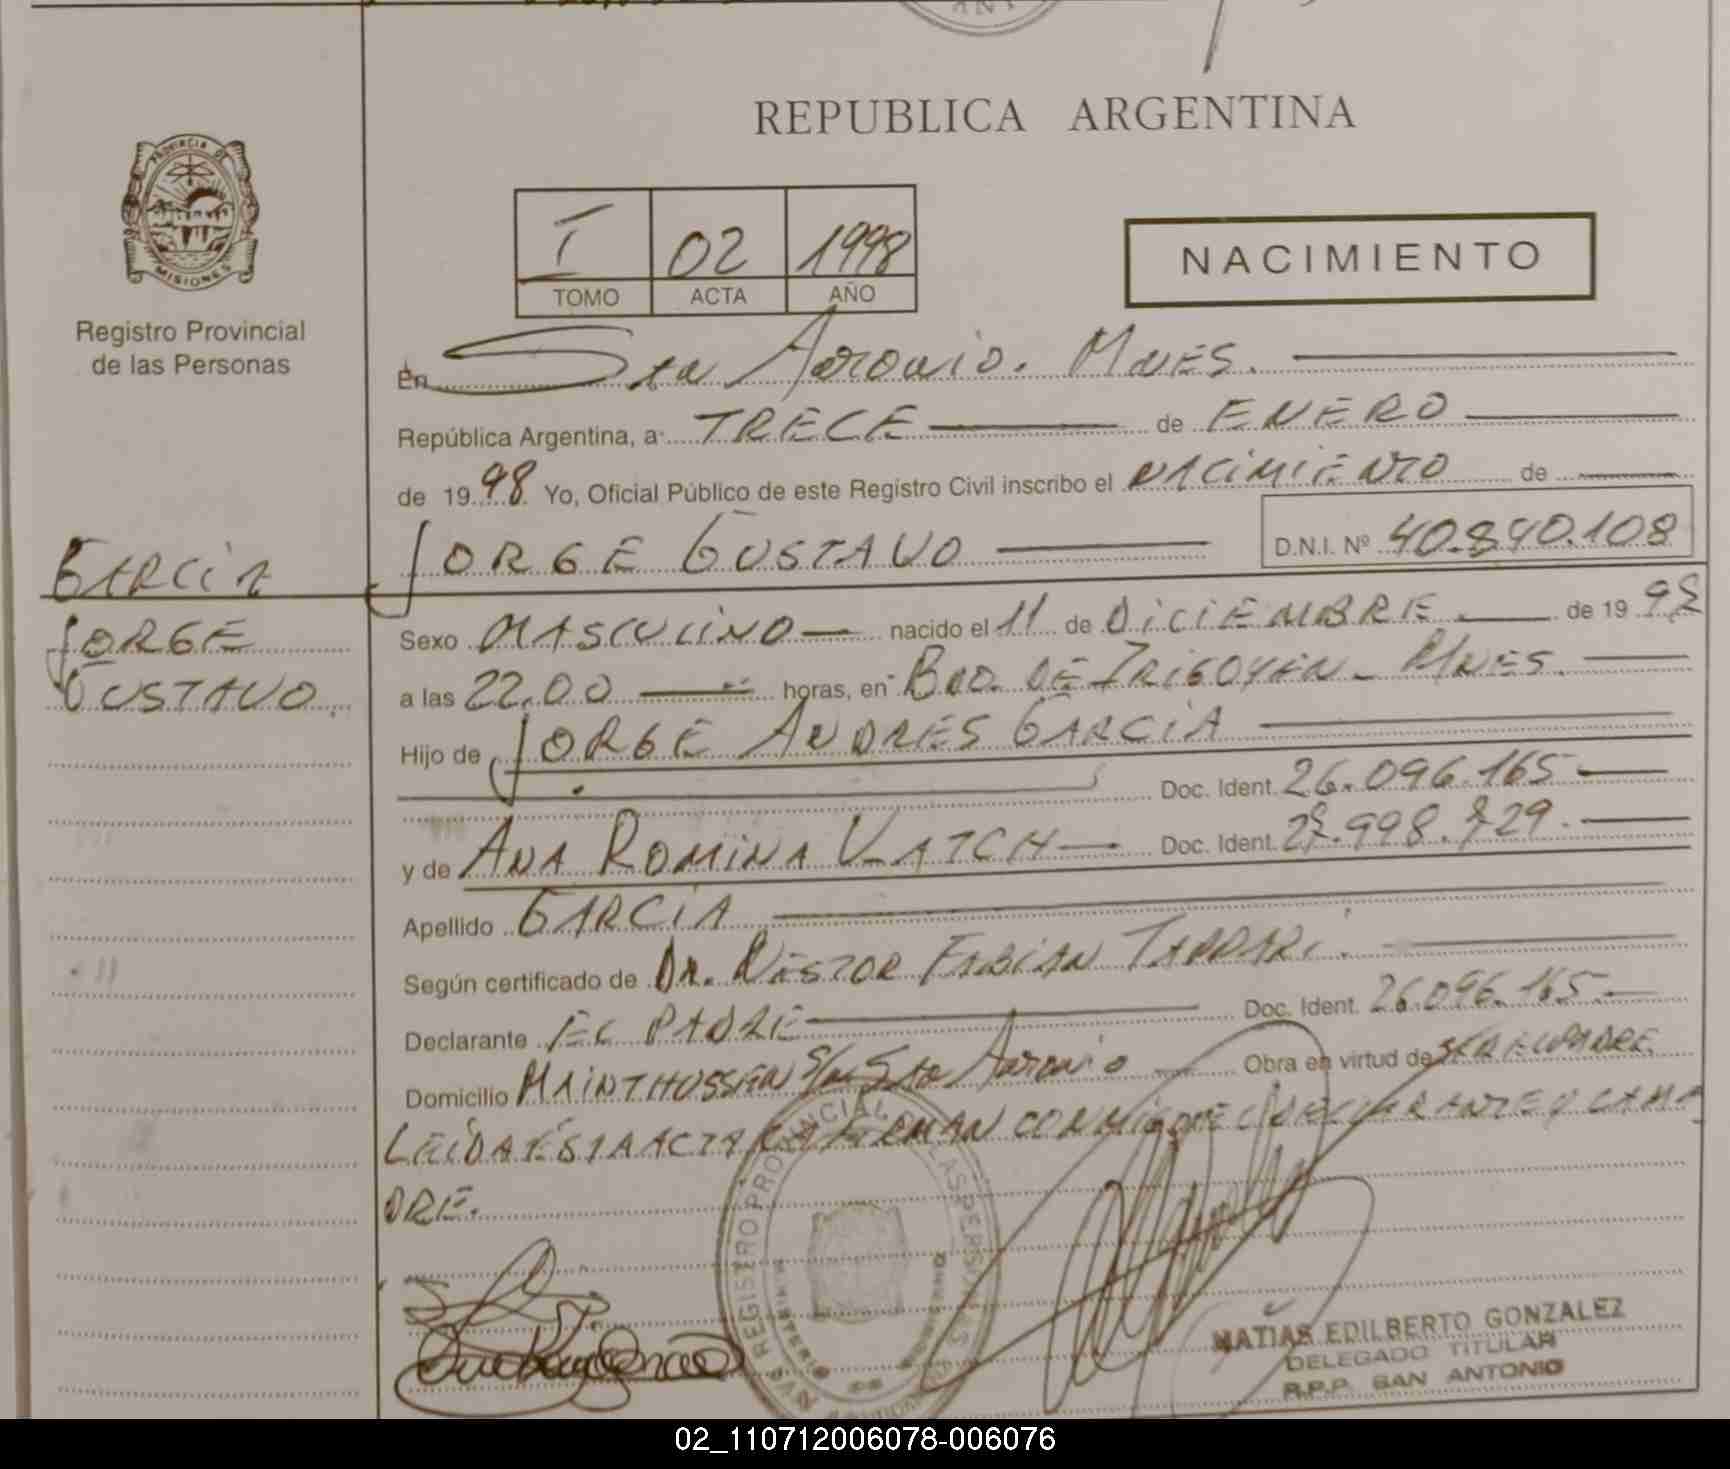 REPUBLICA ARGENTINA
PROVINCIA DE
MISIONES
Registro Provincial
de las Personas
I 02 1998
TOMO ACTA AÑO
NACIMIENTO
En Sta Antonio. Mnes.
República Argentina, a TRECE de ENERO
de 1998 Yo, Oficial Público de este Registro Civil inscribo el NACIMIENTO de
JORGE GUSTAVO D.N.I. Nº 40.840.108
GARCIA
JORGE
GUSTAVO.
Sexo MASCULINO nacido el 11 de DICIEMBRE de 19
a las 22.00 horas, en BDO. DE IRIGOYEN - MNES.
Hijo de JORGE ANDRES GARCIA
Doc. Ident. 26.096.165
y de ANA ROMINA Doc. Ident.
Apellido GARCIA
Según certificado de DR. NESTOR FABIAN
Declarante EL PADRE Doc. Ident. 26.096.165
Domicilio S/N Sta Antonio Obra en virtud de SER EL PADRE
LEIDA ESTA ACTA LA FIRMAN CONMIGO EL DECLARANTE Y LA MA
DRE.
REGISTRO PROVINCIAL LAS PERSONAS
MATIAS EDILBERTO GONZALEZ
DELEGADO TITULAR
R.P.P. SAN ANTONIO
02_110712006078-006076